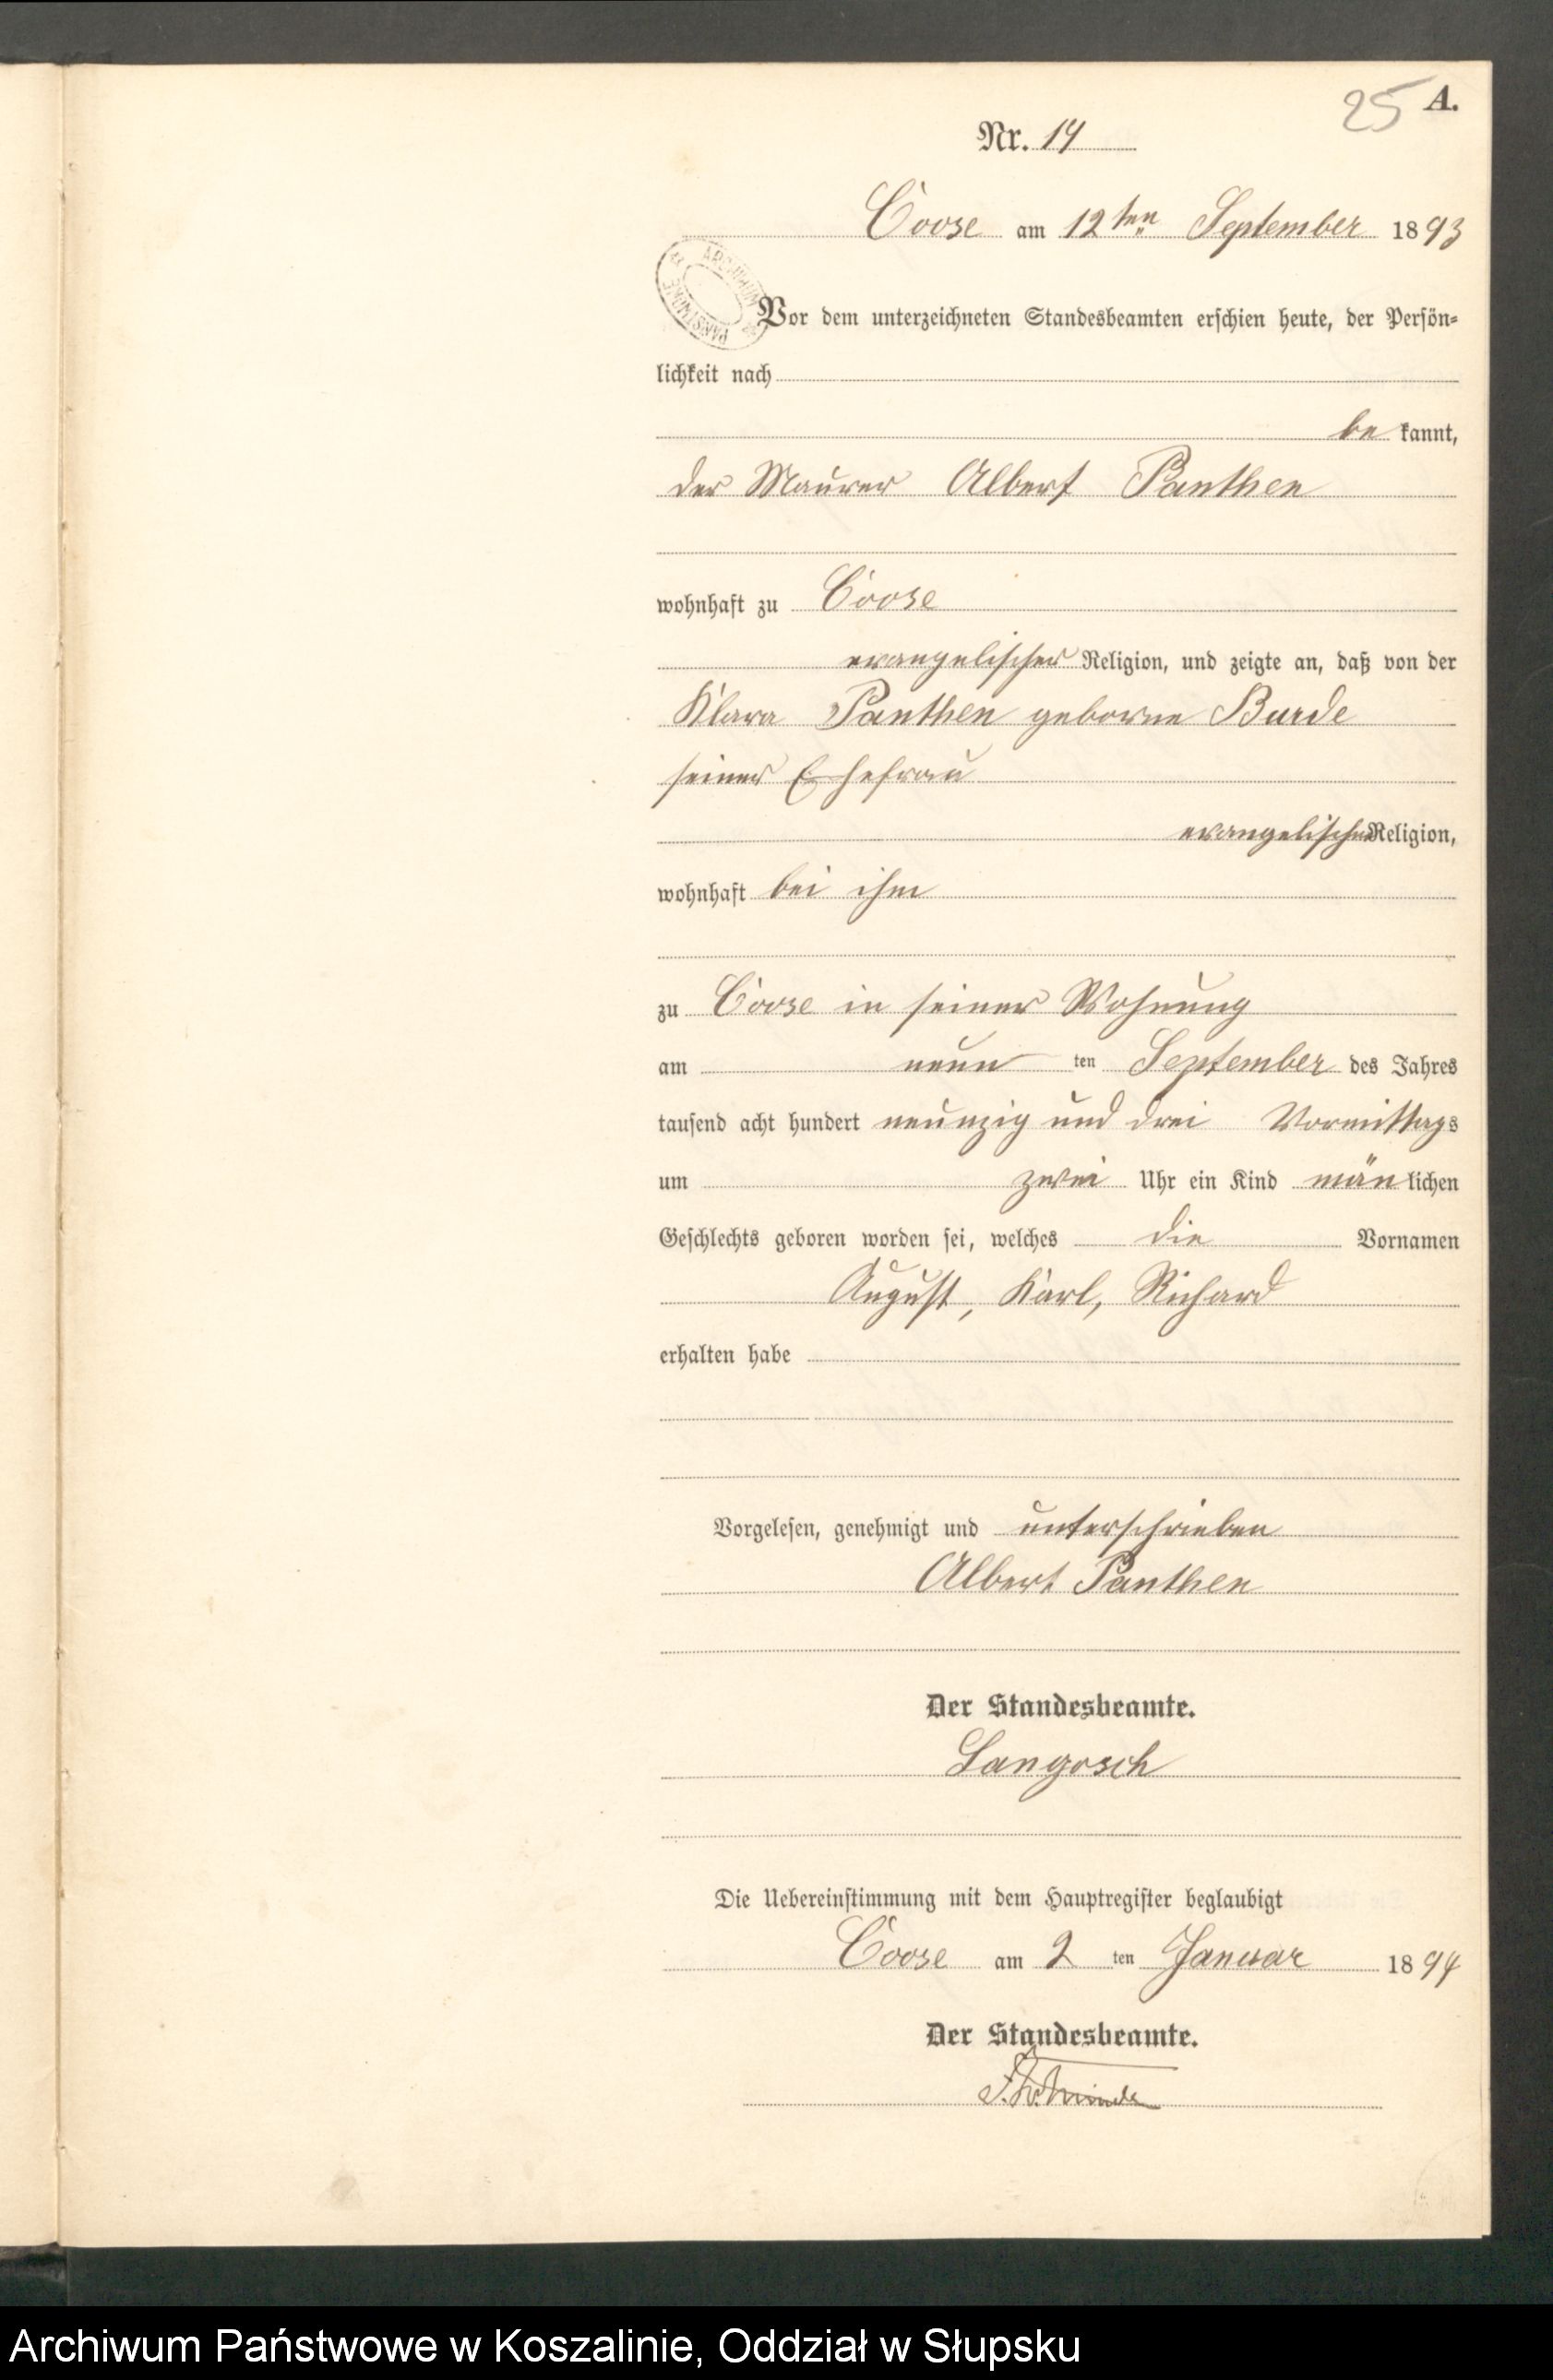 25 A.
Nr. 14
Coose am 12ten September 1893
ARCHIWUM PAŃSTWOWE
Vor dem unterzeichneten Standesbeamten erschien heute, der Persön-
lichkeit nach
be kannt,
der Maurer Albert Panthen
wohnhaft zu Coose
evangelischer Religion, und zeigte an, daß von der
Klara Panthen geborne Burde
seiner Ehefrau
evangelischer Religion,
wohnhaft bei ihm
zu Coose in seiner Wohnung
am neun ten September des Jahres
tausend acht hundert neunzig und drei Vormittags
um zwei Uhr ein Kind män lichen
Geschlechts geboren worden sei, welches die Vornamen
August, Karl, Richard
erhalten habe
Vorgelesen, genehmigt und unterschrieben
Albert Panthen
Der Standesbeamte.
Langosch
Die Uebereinstimmung mit dem Hauptregister beglaubigt
Coose am 2 ten Januar 1894
Der Standesbeamte.
Archiwum Państwowe w Koszalinie, Oddział w Słupsku